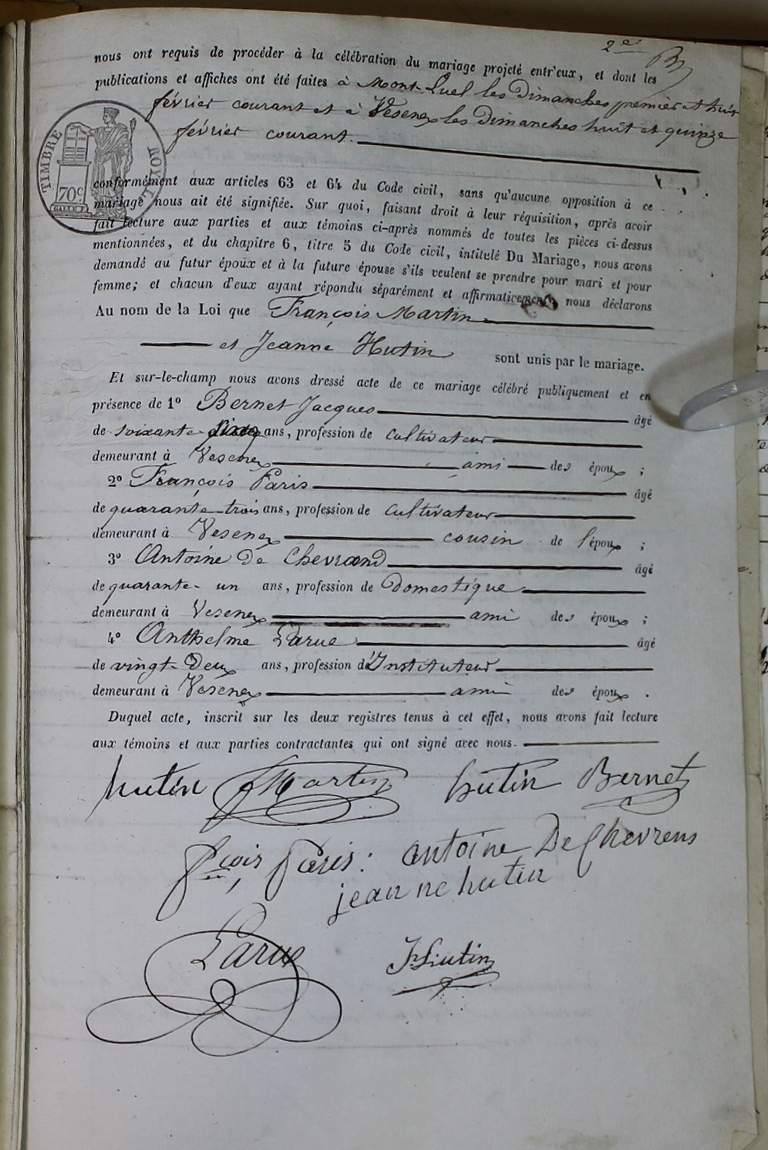 2e
nous ont requis de procéder à la célébration du mariage projeté entr'eux, et dont les
publications et affiches ont été faites à Mont-Luel les Dimanches premier et huit
février courant et à Vesenex les Dimanches huit et quinze
février courant.
TIMBRE ROYAL
70c
conformément aux articles 63 et 64 du Code civil, sans qu'aucune opposition à ce
mariage nous ait été signifiée. Sur quoi, faisant droit à leur réquisition, après avoir
fait lecture aux parties et aux témoins ci-après nommés de toutes les pièces ci-dessus
mentionnées, et du chapitre 6, titre 5 du Code civil, intitulé Du Mariage, nous avons
demandé au futur époux et à la future épouse s'ils veulent se prendre pour mari et pour
femme; et chacun d'eux ayant répondu séparément et affirmativement nous déclarons
Au nom de la Loi que François Martin
et Jeanne Hutin sont unis par le mariage.
Et sur-le-champ nous avons dressé acte de ce mariage célébré publiquement et en
présence de 1o Bernet Jacques âgé
de soixante ans, profession de cultivateur
demeurant à Vesenex ami des époux ;
2o François Paris âgé
de quarante-trois ans, profession de cultivateur
demeurant à Vesenex cousin de l'époux ;
3o Antoine De Chevrand âgé
de quarante-un ans, profession de Domestique
demeurant à Vesenex ami des époux ;
4o Anthelme Larue âgé
de vingt-Deux ans, profession d'Instituteur
demeurant à Vesenex ami des époux .
Duquel acte, inscrit sur les deux registres tenus à cet effet, nous avons fait lecture
aux témoins et aux parties contractantes qui ont signé avec nous.
hutin f Martin hutin Bernet
fçois Paris : antoine De Chevrens
jeanne hutin
Larue Hutin